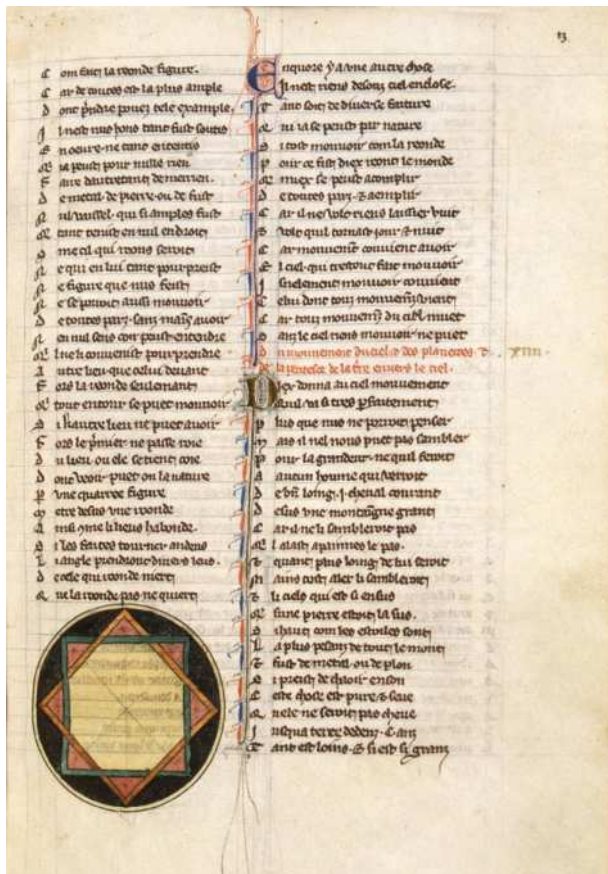 C ar de toutes est la plus ample
D ont pndre pouez tele example.
I l nest nus hons tant fust soutis
N en oeure ne tant ententis
Q ia peust pour nulle rien
F aire dautretant de merrien.
D e metal de pierre ou de fust
N ul uaissel qui si amples fust
Q tant tenist en nul endroit
C me cil qui reons seroit
N e qui en lui tant pour preist
N e figure que nus feist
N e se porroit aussi mouuoir
D e toutes parz sanz auoir
A utre lieu que celui deuant
F ors la reonde seulemant
Q tout entour se puet mouuoir
S i kautre lieu ne puet auoir
F ors le pmier ne passe roie
D u lieu ou ele se tient coie
D ont ueoir puet on la nature
P vne quarree figure
M etre desus vne reonde
S i les faites tourner andeus
L angle prendront diuers leus.
D e cele qui reonde niert
Q ue la reonde pas ne quiert
13
E nquore y a vne autre chose
Q il nest riens desouz ciel enclose.
T ant soit de diuerse faiture
Q ui ia se peust par nature
S i tost mouuoir com la reonde
P our ce fist diex reont le monde
Q miex se peust acomplir
D e toutes parz & aemplir
C ar il ne volt riens laissier vuit
& volt quil tornast jour & nuit
C ar mouuement couuient auoir
E l ciel qui trestout fait mouuoir
I snelement mouuoir couuient
C elui dont touz mouuemz vient
C ar touz mouuemz du ciel muet
S anz le ciel riens mouuoir ne puet
D u mouuement du ciel & des planetes & XIIII.
de la petitesce de la tre enuers le ciel.
D iex donna au ciel mouuement
Q uil va si tres pfaitement
P lus que nus ne porroit penser
M ais il nel nous puet pas sambler
P our la grandeur ne quil feroit
A aucun houme qui verroit
D e bn loing .i. cheual courant
D esus vne montaigne grant
C ar il ne li sambleroit pas
Q l alast a paines le pas.
& quant plus loing de lui seroit
M ains tost aler li sambleroit
& li ciels qui est si ensus
Q sune pierre estoit la sus.
S i haut com les estoiles sont
L a plus pesanz de tout le mont
& fust de metal ou de plon
C este chose est pure & seie
Q uele ne seroit pas cheue
I usqua terre dedenz .C. anz
T ant est loins & si est si granz